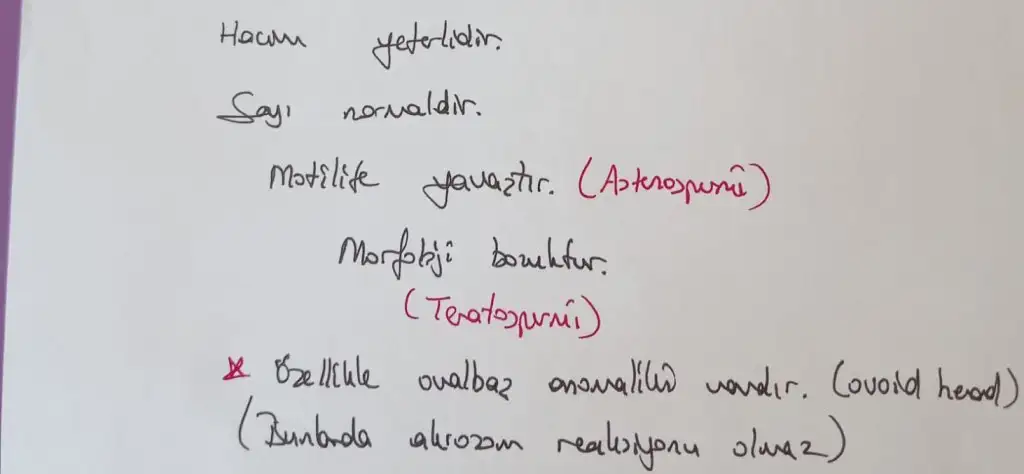 Hacim yeterlidir.
Sayı normaldir.
Motilite yavaştır. (Astenospermi)
Morfoloji bozuktur.
(Teratospermi)
* Özellikle ovalbaş anomalileri vardır. (ovoid head)
(Bunlarda akrozom reaksiyonu olmaz)